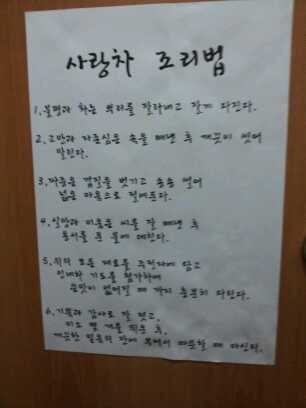 사랑차 조리법
1. 불평과 화는 뿌리를 잘라내고 잘게 다진다.
2. 교만과 자존심은 속을 빼낸 후 깨끗이 씻어
말린다.
3. 짜증은 껍질을 벗기고 송송 썰어
넓은 마음으로 절여둔다.
4. 실망과 미움은 씨를 잘 빼낸 후
용서를 푼 물에 데친다.
5. 위의 모든 재료를 주전자에 담고
인내와 기도를 첨가하여
쓴맛이 없어질 때 까지 충분히 다린다.
6. 기쁨과 감사로 잘 젓고,
미소 몇 개를 띄운 후,
깨끗한 믿음의 잔에 부어서 따뜻할 때 마신다.